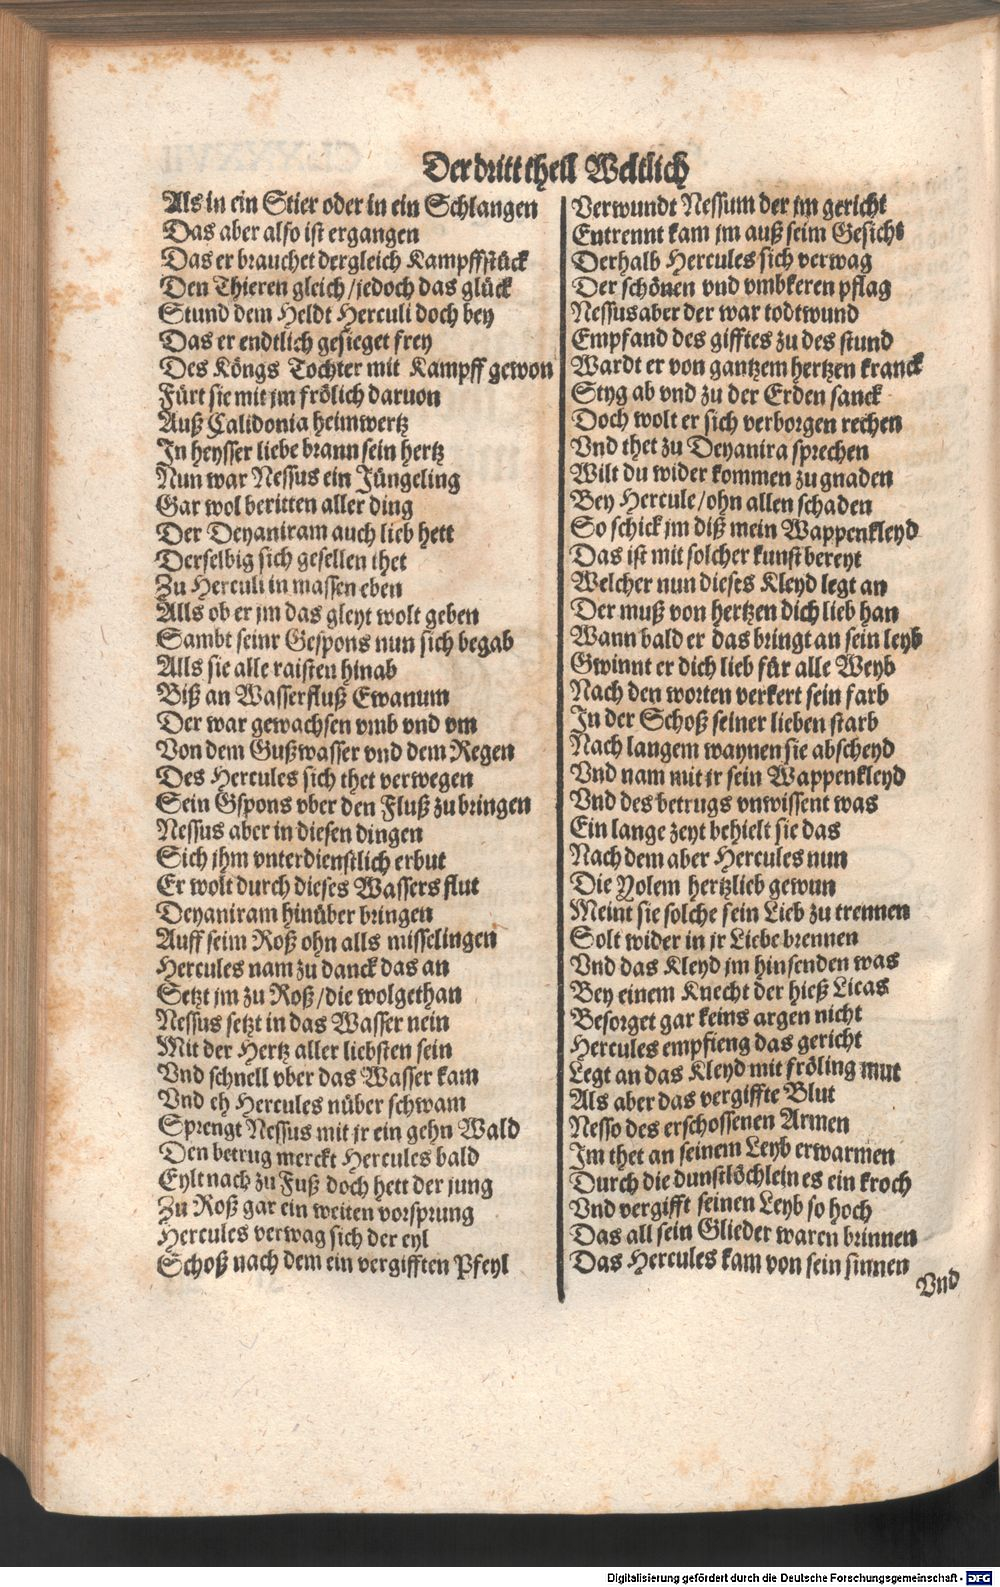 Der dritt theil Weltlich
Als in ein Stier oder in ein Schlangen
Das aber also ist ergangen
Das er brauchet dergleich Kampffstück
Den Thieren gleich / jedoch das glück
Stund dem Heldt Herculi doch bey
Das er endtlich gesieget frey
Des Köngs Tochter mit Kampff gewon
Fürt sie mit jm frölich daruon
Auß Calidonia heimwertz
In heysser liebe brann sein hertz
Nun war Nessus ein Jüngeling
Gar wol beritten aller ding
Der Deyaniram auch lieb hett
Derselbig sich gesellen thet
Zu Herculi in massen eben
Alls ob er jm das gleyt wolt geben
Sambt seinr Gespons nun sich begab
Alls sie alle raisten hinab
Biß an Wasserfluß Ewanum
Der war gewachsen vmb vnd vm
Von dem Gußwasser vnd dem Regen
Des Hercules sich thet verwegen
Sein Gspons vber den Fluß zu bringen
Nessus aber in diesen dingen
Sich jhm vnterdienstlich erbut
Er wolt durch dieses Wassers flut
Deyaniram hinüber bringen
Auff seim Roß ohn alls misselingen
Hercules nam zu danck das an
Setzt jm zu Roß / die wolgethan
Nessus setzt in das Wasser nein
Mit der Hertz aller liebsten sein
Vnd schnell vber das Wasser kam
Vnd eh Hercules nüber schwam
Sprengt Nessus mit jr ein gehn Wald
Den betrug merckt Hercules bald
Eylt nach zu Fuß doch hett der jung
Zu Roß gar ein weiten vorsprung
Hercules verwag sich der eyl
Schoß nach dem ein vergifften Pfeyl
Verwundt Nessum der jm gericht
Entrennt kam jm auß seim Gesicht
Derhalb Hercules sich verwag
Der schönen vnd vmbkeren pflag
Nessus aber der war todtwund
Empfand des gifftes zu des stund
Wardt er von gantzem hertzen kranck
Styg ab vnd zu der Erden sanck
Doch wolt er sich verborgen rechen
Vnd thet zu Deyanira sprechen
Wilt du wider kommen zu gnaden
Bey Hercule / ohn allen schaden
So schick jm diß mein Wappenkleyd
Das ist mit solcher kunst bereyt
Welcher nun dieses Kleyd legt an
Der muß von hertzen dich lieb han
Wann bald er das bringt an sein leyb
Gwinnt er dich lieb für alle Weyb
Nach den worten verkert sein farb
In der Schoß seiner lieben starb
Nach langem waynen sie abscheyd
Vnd nam mit jr sein Wappenkleyd
Vnd des betrugs vnwissent was
Ein lange zeyt behielt sie das
Nach dem aber Hercules nun
Die Yolem hertzlieb gewun
Meint sie solche sein Lieb zu trennen
Solt wider in jr Liebe brennen
Vnd das Kleyd jm hinsenden was
Bey einem Knecht der hieß Licas
Besorget gar keins argen nicht
Hercules empfieng das gericht
Legt an das Kleyd mit fröling mut
Als aber das vergiffte Blut
Nesso des erschossenen Armen
Im thet an seinem Leyb erwarmen
Durch die dunstlöchlein es ein kroch
Vnd vergifft seinen Leyb so hoch
Das all sein Glieder waren brinnen
Das Hercules kam von sein sinnen
Vnd
Digitalisierung gefördert durch die Deutsche Forschungsgemeinschaft - DFG